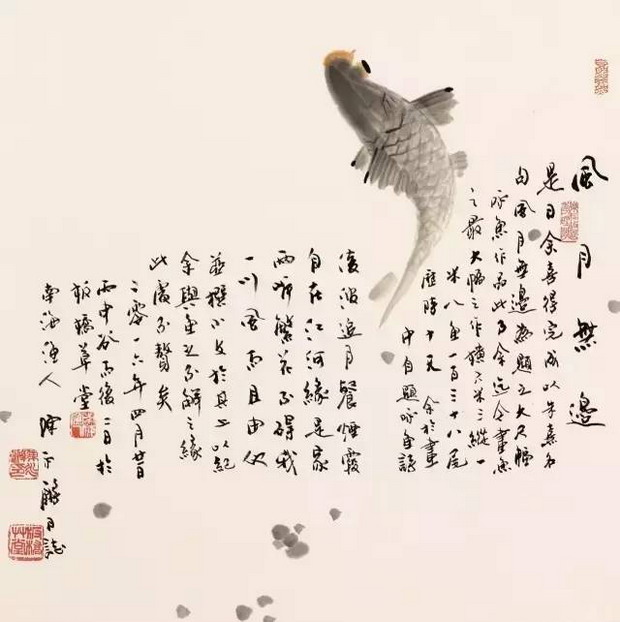 風月無邊
是日余喜得完成以朱熹名
句風月無邊為題之大尺幅
咏魚作品此乃余迄今畫魚
之最大幅之作橫六米三縱一
米八魚一百三十八尾
歷時十天 余於畫
中自題咏魚詩
凌波追月餐煙霞
自在江河緣是家
兩岸繁花不碍我
一川風雨且由他
並撰小文於其上以紀
余與魚之不解之緣
此處不贅矣
二零一六年四月廿日
丙申谷雨後二日於
板橋草堂
南海漁人 陳
板橋草堂